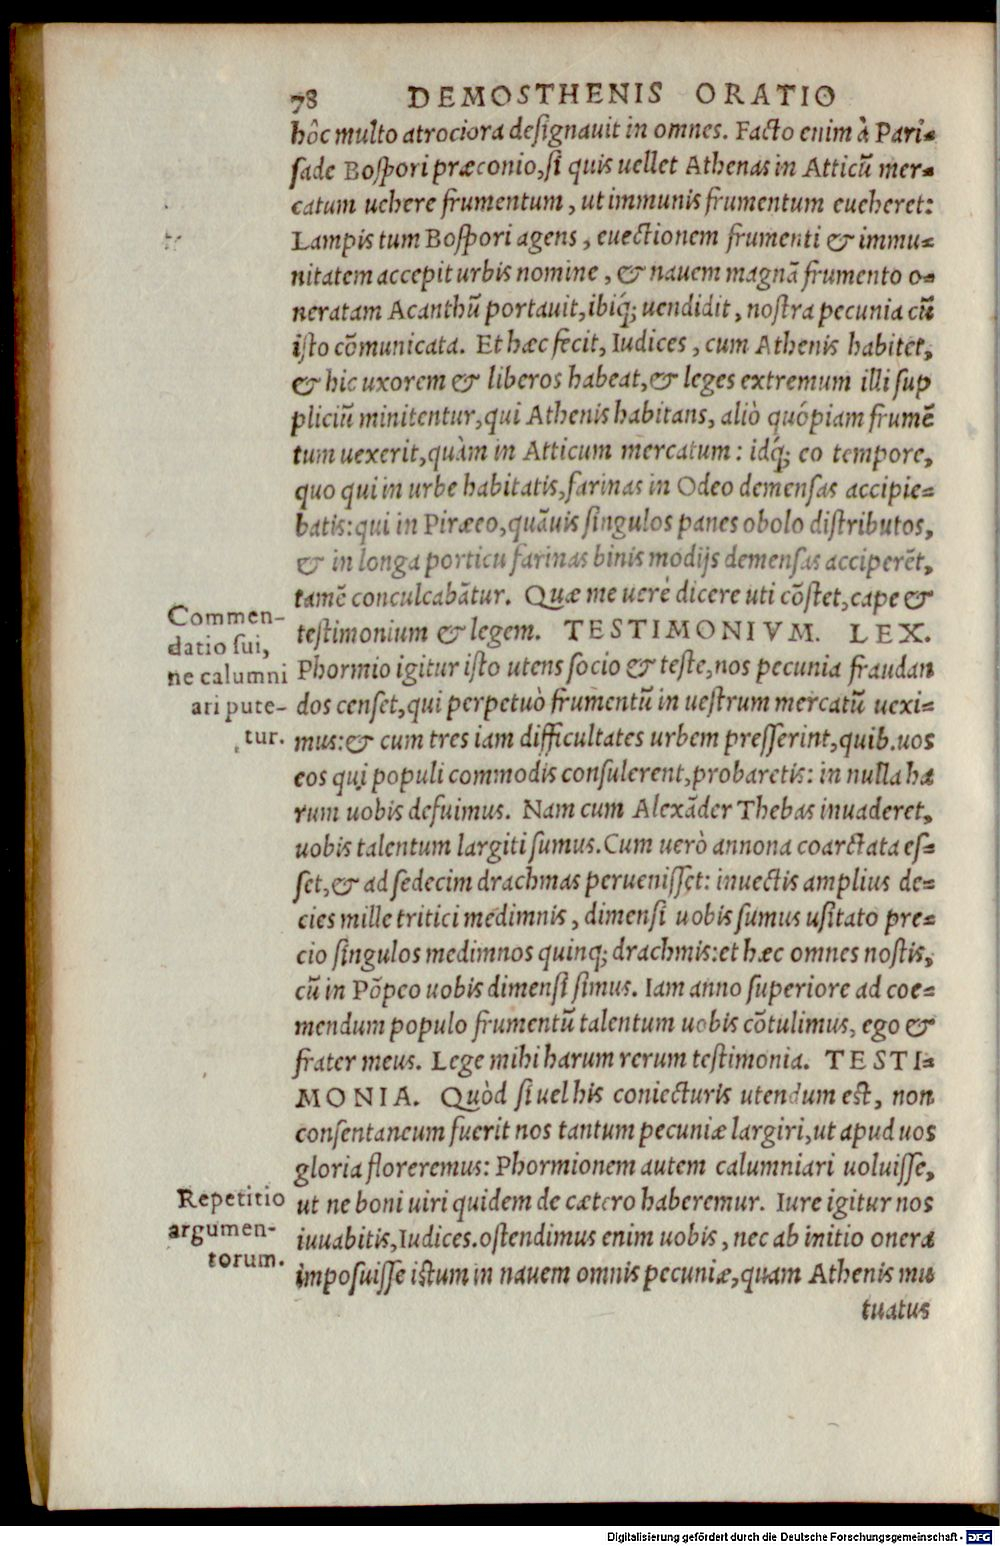 78 DEMOSTHENIS ORATIO
hôc multo atrociora designauit in omnes. Facto enim à Pari-
sade Bospori præconio, si quis uellet Athenas in Atticũ mer-
catum uehere frumentum, ut immunis frumentum eueheret:
Lampis tum Bospori agens, euectionem frumenti & immu-
nitatem accepit urbis nomine, & nauem magnã frumento o-
neratam Acanthũ portauit, ibiq́; uendidit, nostra pecunia cũ
isto cõmunicata. Et hæc fecit, Iudices, cum Athenis habitet,
& hic uxorem & liberos habeat, & leges extremum illi sup
pliciũ minitentur, qui Athenis habitans, aliò quópiam frumẽ
tum uexerit, quàm in Atticum mercatum: idq́; eo tempore,
quo qui in urbe habitatis, farinas in Odeo demensas accipie-
batis: qui in Piræeo, quãuis singulos panes obolo distributos,
& in longa porticu farinas binis modijs demensas acciperẽt,
tamẽ conculcabãtur. Quæ me uerè dicere uti cõstet, cape &
testimonium & legem. TESTIMONIVM. LEX.
Commen-
datio sui,
ne calumni
ari pute-
tur.
Phormio igitur isto utens socio & teste, nos pecunia fraudan
dos censet, qui perpetuò frumentũ in uestrum mercatũ uexi-
mus: & cum tres iam difficultates urbem presserint, quib. uos
eos qui populi commodis consulerent, probaretis: in nulla ha
rum uobis defuimus. Nam cum Alexãder Thebas inuaderet,
uobis talentum largiti sumus. Cum uerò annona coarctata es-
set, & ad sedecim drachmas peruenisset: inuectis amplius de-
cies mille tritici medimnis, dimensi uobis sumus usitato pre-
cio singulos medimnos quinq; drachmis: et hæc omnes nostis,
cũ in Põpeo uobis dimensi simus. Iam anno superiore ad coe-
mendum populo frumentũ talentum uobis cõtulimus, ego &
frater meus. Lege mihi harum rerum testimonia. TESTI-
MONIA. Quòd si uel his coniecturis utendum est, non
consentaneum fuerit nos tantum pecuniæ largiri, ut apud uos
gloria floreremus: Phormionem autem calumniari uoluisse,
ut ne boni uiri quidem de cætero haberemur. Iure igitur nos
Repetitio
argumen-
torum.
iuuabitis, Iudices. ostendimus enim uobis, nec ab initio onera
imposuisse istum in nauem omnis pecuniæ, quam Athenis mu
tuatus
Digitalisierung gefördert durch die Deutsche Forschungsgemeinschaft - DFG